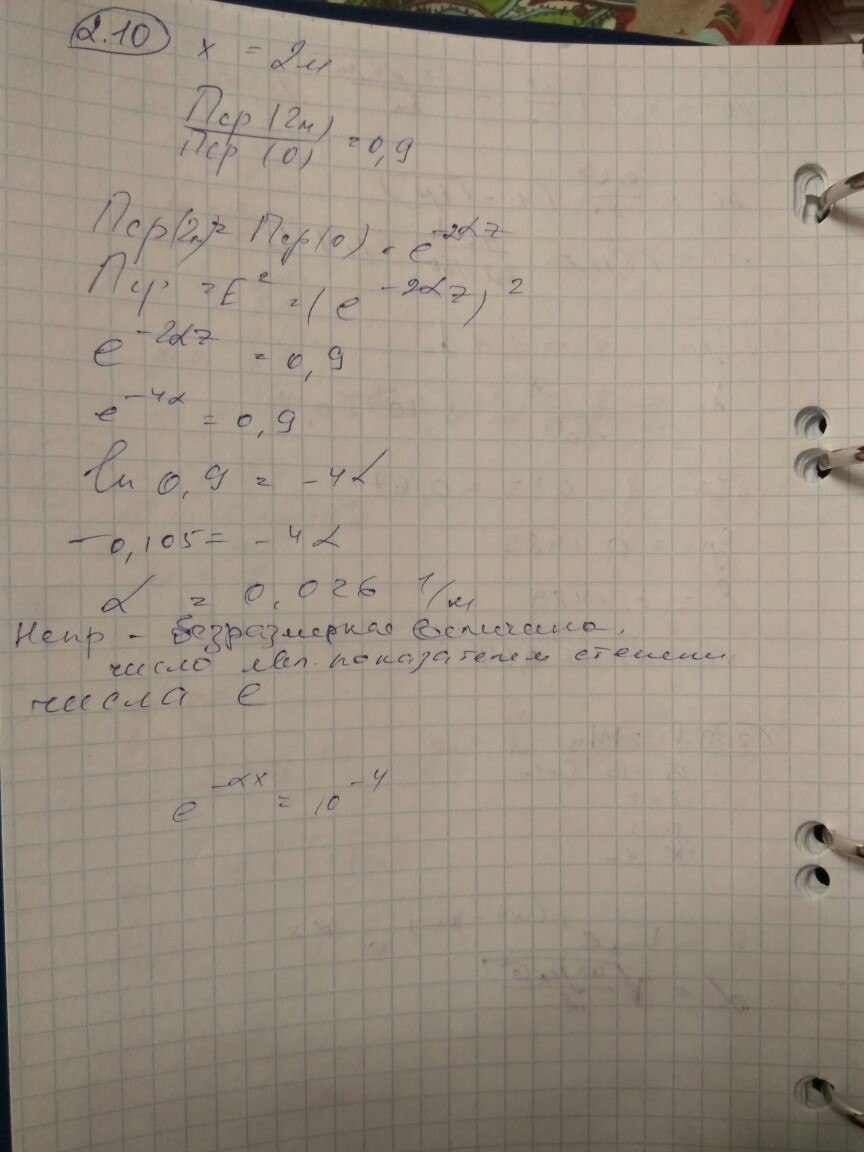 2.10
x = 2м
Пср (2м) / Пср (0) = 0,9
Пср(2м) = Пср(0) · e^-2αz
Пср = E² = (e^-2αz)²
e^-2αz = 0,9
e^-4α = 0,9
ln 0,9 = -4α
-0,105 = -4α
α = 0,026 1/м
Непр - безразмерная величина,
число явл. показателем степени
числа e
e^-αx = 10^-4